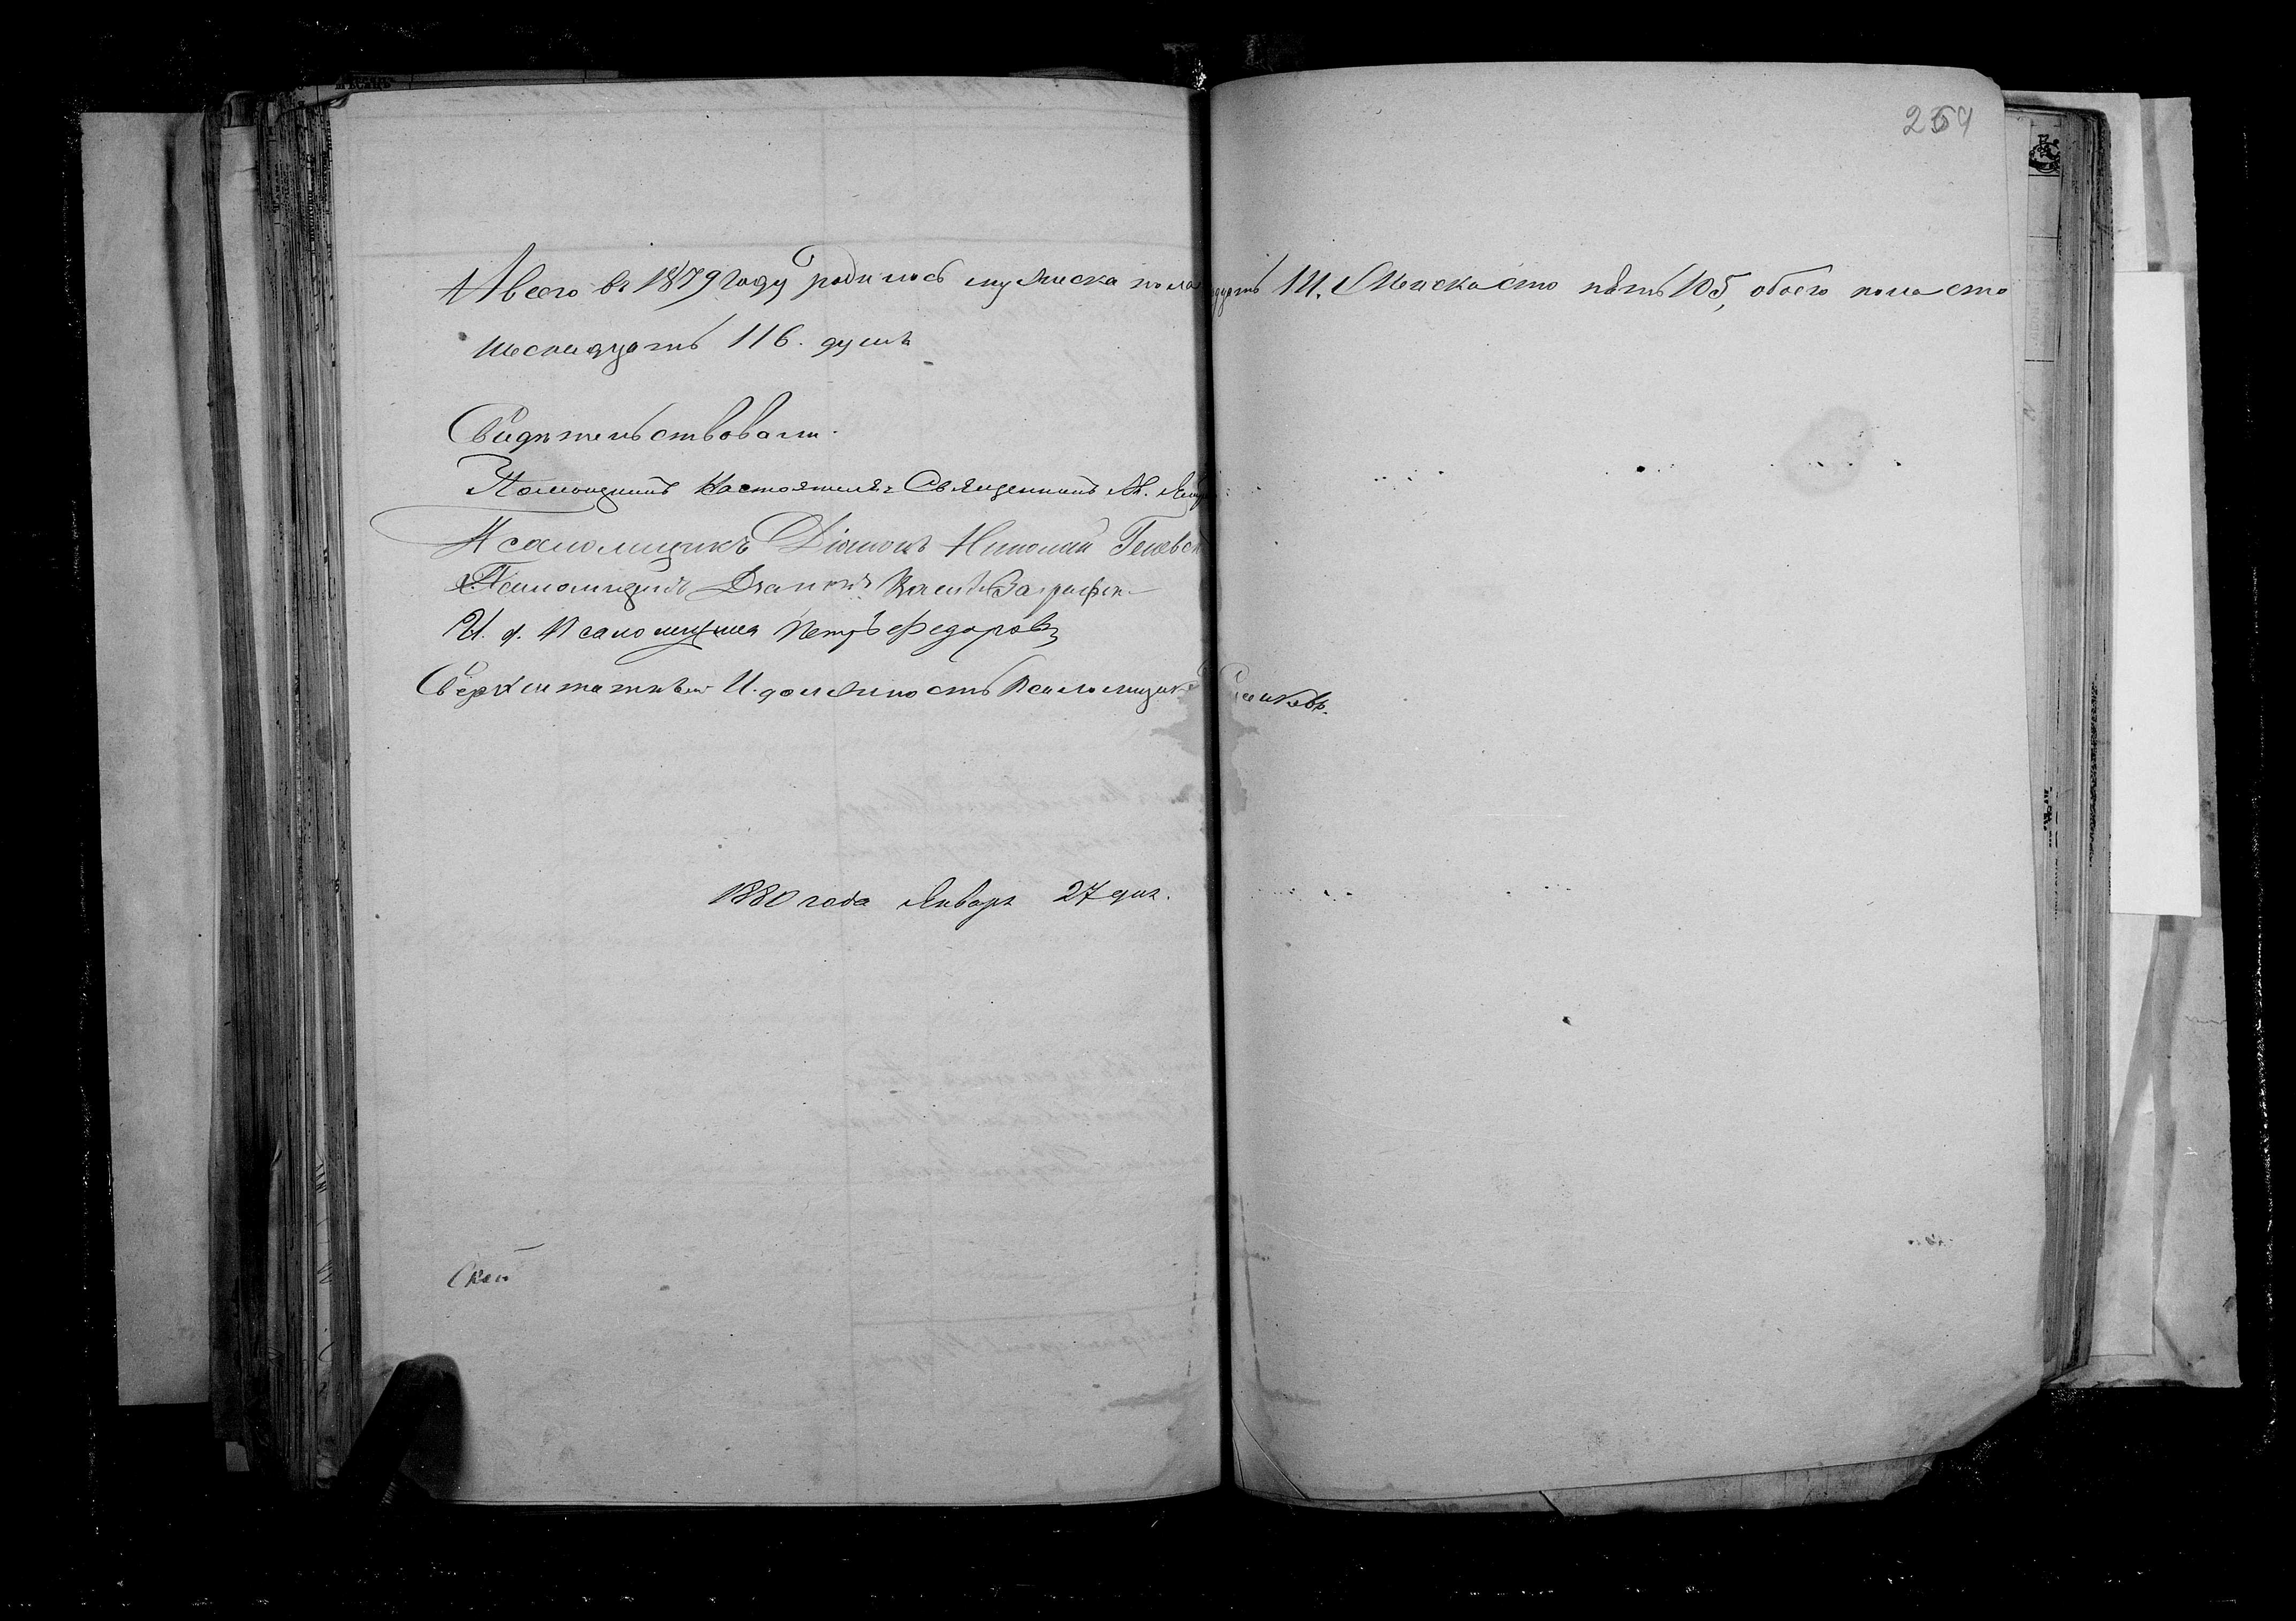 264
А всего въ 1879 году родилось мужеска пола 111. Женска сто пять 105, обоего пола сто
шестнадцать 116. душъ
Свидѣтельствовали.
Помощникъ Настоятеля Священникъ
Псаломщикъ Діаконъ Николай
Псаломщикъ Діаконъ
И. д. Псаломщика Петръ Федоровъ
Сверхштатный И. должность Псаломщика
1880 года Января 27 дня.